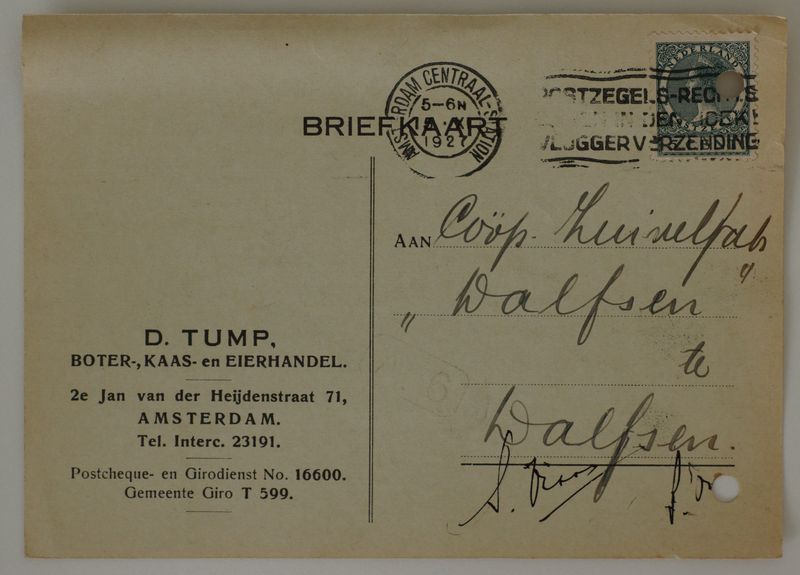 NEDERLAND
AMSTERDAM CENTRAAL-STATION
5-6 N
1927
POSTZEGELS-RECHTS
IN DEN HOEK!
VLUGGER VERZENDING
BRIEFKAART
AAN Coöp. Zuivelfab
„Dalfsen"
te
Dalfsen.
D. TUMP,
BOTER-, KAAS- en EIERHANDEL.
2e Jan van der Heijdenstraat 71,
AMSTERDAM.
Tel. Interc. 23191.
Postcheque- en Girodienst No. 16600.
Gemeente Giro T 599.